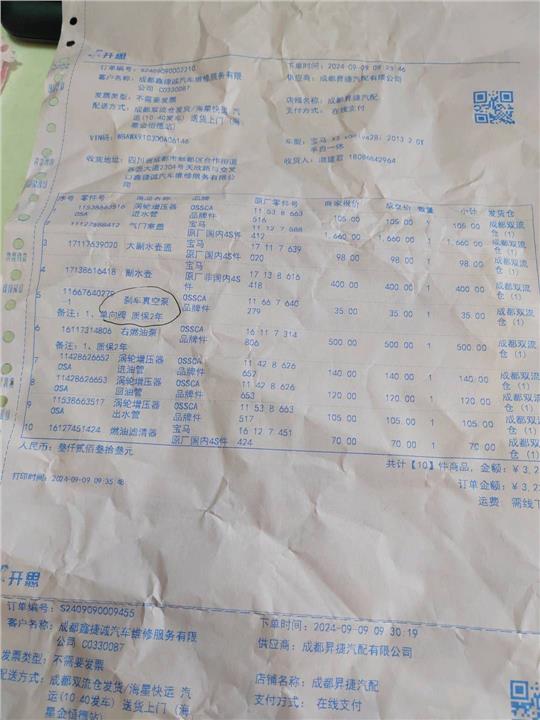 开思
订单编号: S2409090002210
下单时间: 2024-09-09 09:25:46
客户名称: 成都鑫捷诚汽车维修服务有限
公司 C0330087
供应商: 成都昇捷汽配有限公司
发票类型: 不需要发票
店铺名称: 成都昇捷汽配
配送方式: 成都双流仓发货/海星快运 汽
运(10:40发车) 送货上门 (海
星金恒德站)
支付方式: 在线支付
车型: 宝马 X3 2013 2.0T
手自一体
收货地址: 四川省成都市新都区合作街道
2304号天欣路与交叉
口鑫捷诚汽车维修服务有限公司
序号 零件号 品牌 原厂零件号 商家报价 成交价 数量 小计 发货仓
11538663516 涡轮增压器 OSSCA 11 53 8 663 105.00 105.00 1 105.00 成都双流
OSA 进水管 品牌件 516 仓 (1)
气门室盖 宝马 11 12 7 588 1,660.00 1,660.00 1 1,660.00 成都双流
原厂国内4S件 412 仓 (1)
3 17117639020 大副水壶盖 宝马 17 11 7 639 98.00 98.00 1 98.00 成都双流
原厂国内4S件 020 仓 (1)
4 17138616418 副水壶 宝马 17 13 8 616 400.00 400.00 1 400.00 成都双流
原厂非国内4S件 418 仓 (1)
5 11667640279 刹车真空泵 OSSCA 11 66 7 640 35.00 35.00 1 35.00 成都双流
-1 品牌件 279 仓 (1)
备注: 1、单向阀 质保2年
6 16117314806 右燃油泵 OSSCA 16 11 7 314 500.00 500.00 1 500.00 成都双流
品牌件 806 仓 (1)
备注: 1、质保2年
7 11428626652 涡轮增压器 OSSCA 11 42 8 626 140.00 140.00 1 140.00 成都双流
OSA 进油管 品牌件 652 仓 (1)
8 11428626653 涡轮增压器 OSSCA 11 42 8 626 120.00 120.00 1 120.00 成都双流
OSA 回油管 品牌件 653 仓 (1)
9 11538663517 涡轮增压器 OSSCA 11 53 8 663 105.00 105.00 1 105.00 成都双流
OSA 出水管 品牌件 517 仓 (1)
10 16127451424 燃油滤清器 宝马 16 12 7 451 70.00 70.00 1 70.00 成都双流
原厂国内4S件 424 仓 (1)
人民币: 叁仟贰佰叁拾叁元
共计【10】件商品, 金额: ¥3,2
订单金额: ¥3,2
打印时间: 2024-09-09 09:35
运费 需线下
开思
订单编号: S2409090009455
下单时间: 2024-09-09 09:30:19
客户名称: 成都鑫捷诚汽车维修服务有限
公司 C0330087
供应商: 成都昇捷汽配有限公司
发票类型: 不需要发票
店铺名称: 成都昇捷汽配
配送方式: 成都双流仓发货/海星快运 汽
运(10:40发车) 送货上门 (海
星金恒德站)
支付方式: 在线支付